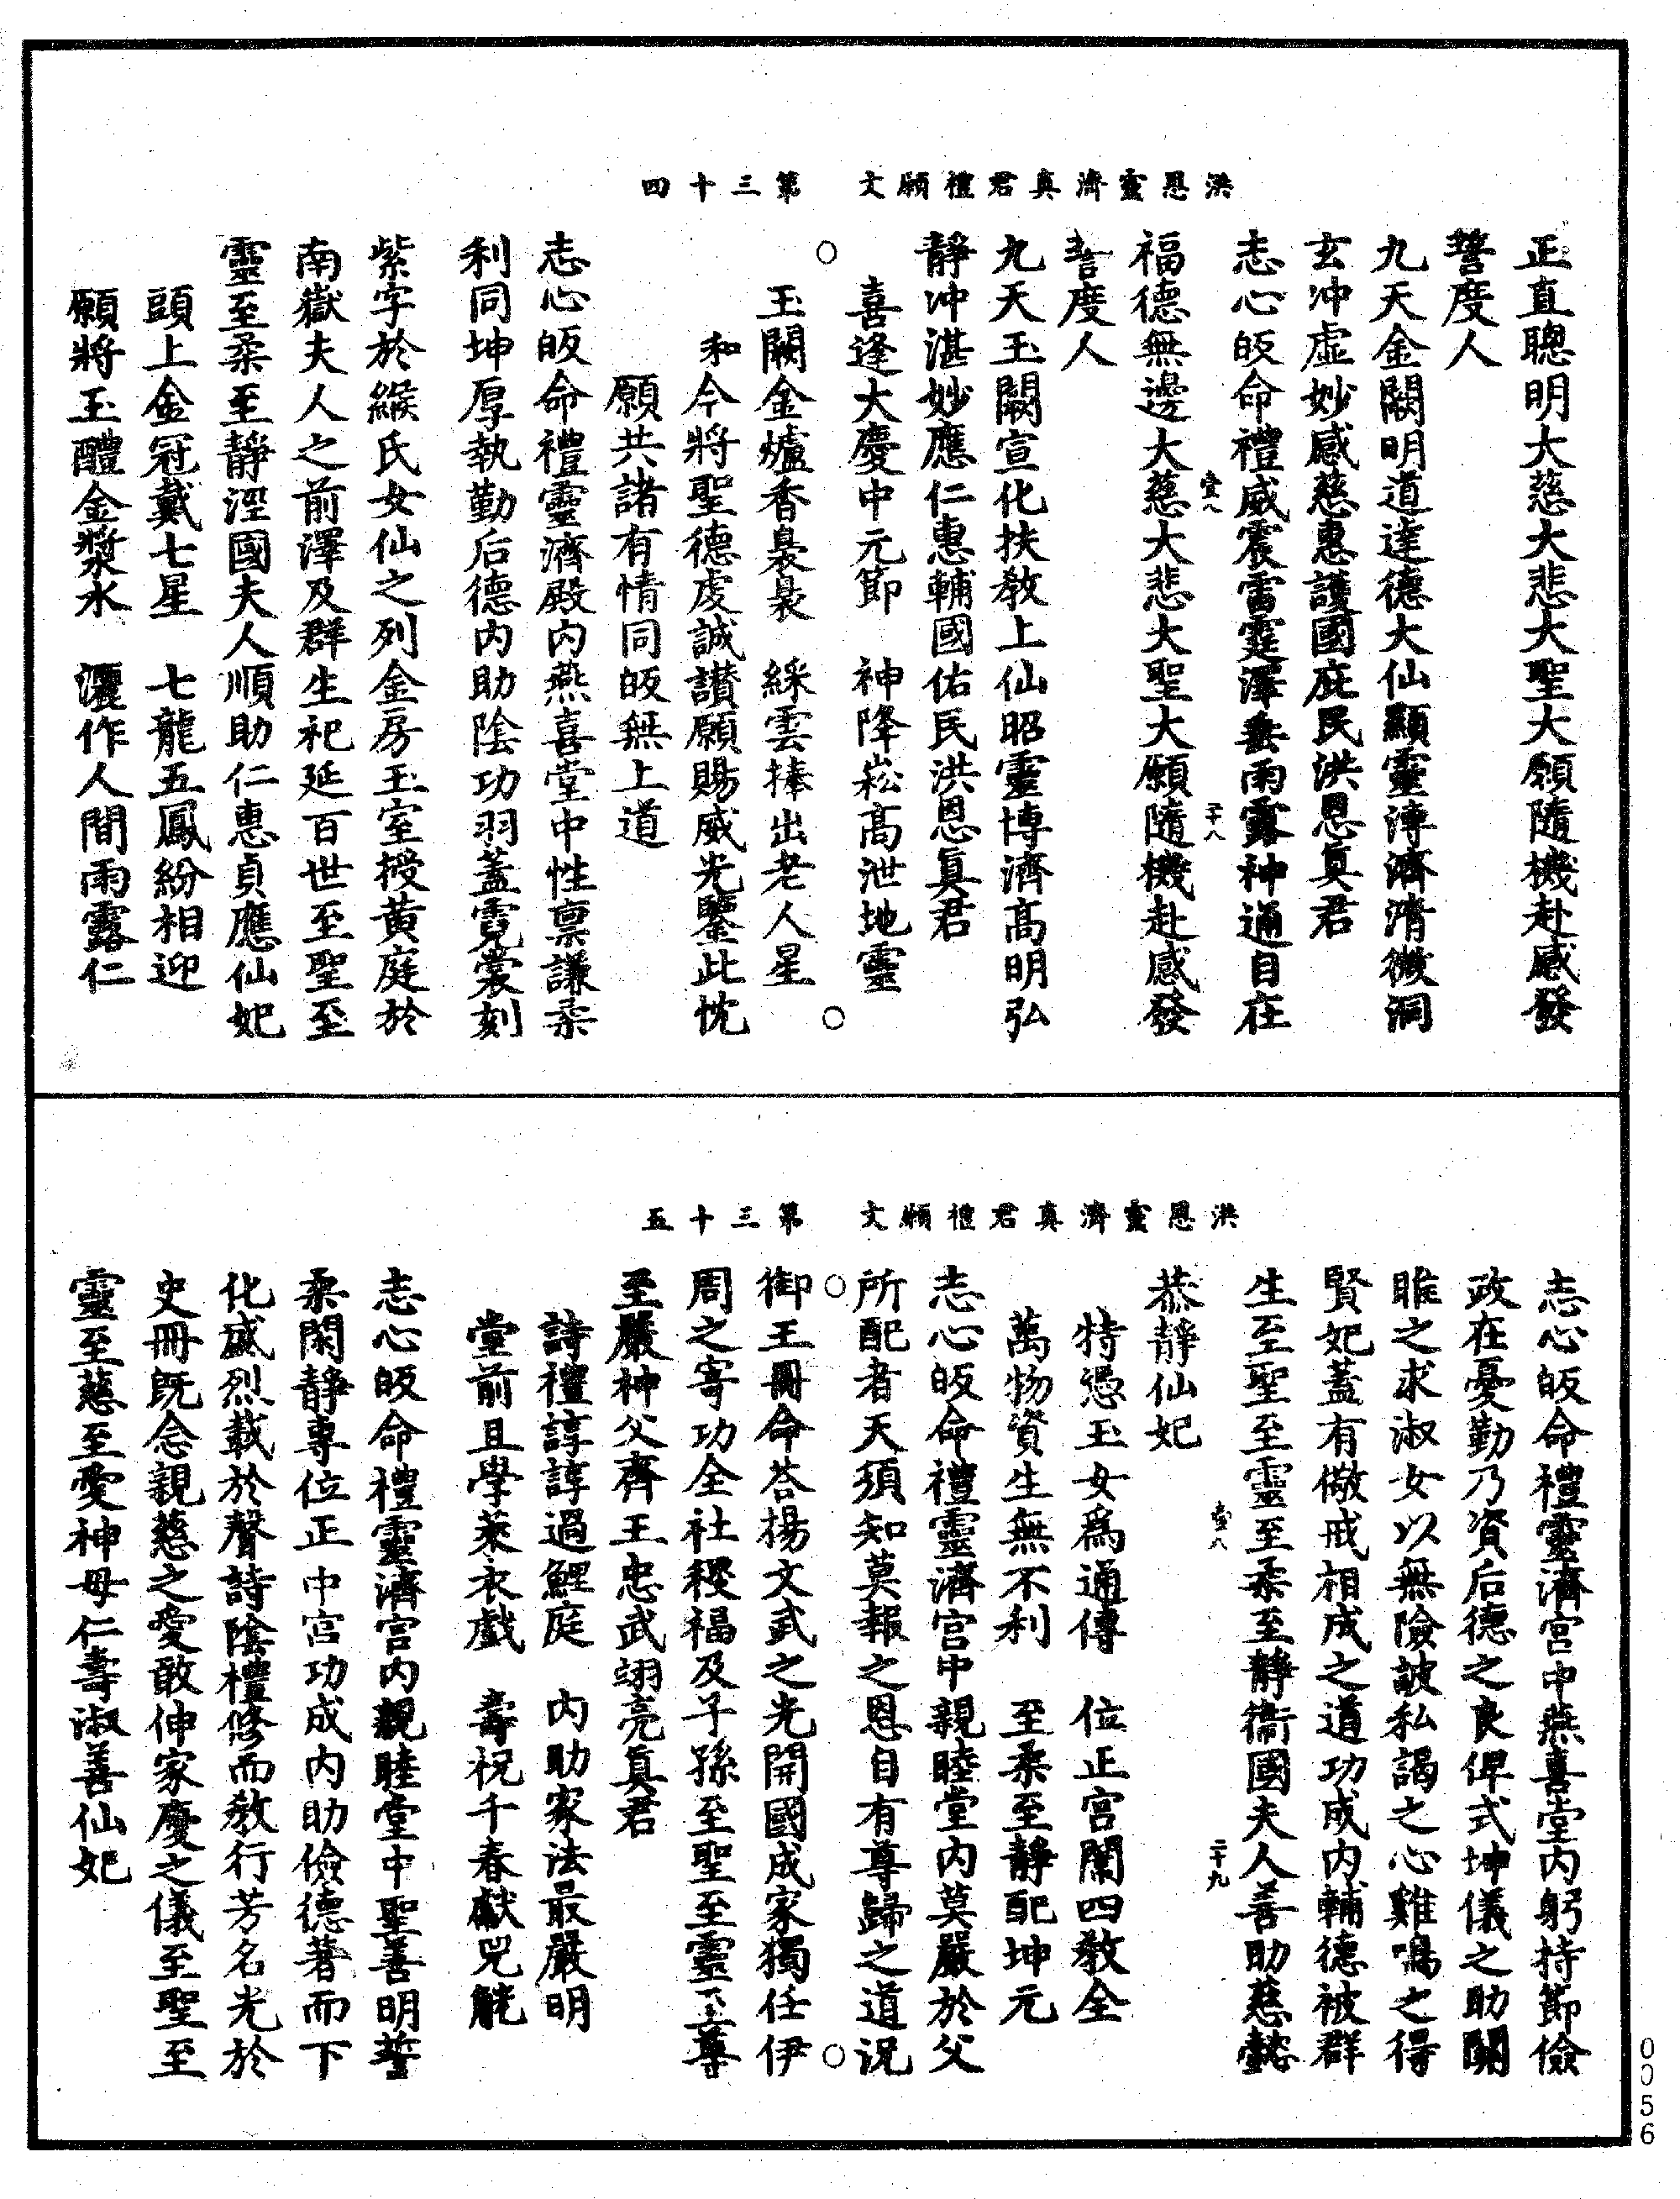 洪恩靈濟真君禮願文　第三十四
正直聰明大慈大悲大聖大願隨機赴感發
誓度人
九天金闕明道達德大仙顯靈溥濟清微洞
玄冲虛妙感慈惠護國庇民洪恩真君
志心皈命禮威震雷霆澤垂雨露神通自在
壹八　二十八
福德無邊大慈大悲大聖大願隨機赴感發
誓度人
九天玉闕宣化扶教上仙昭靈博濟高明弘
靜冲湛妙應仁惠輔國佑民洪恩真君
喜逢大慶中元節　神降崧高泄地靈
○玉闕金爐香裊裊　綵雲捧出老人星○
和
今將聖德虔誠讃願賜威光鑒此忱
願共諸有情同皈無上道
志心皈命禮靈濟殿內燕喜堂中性禀謙柔
利同坤厚執勤后德內助陰功羽蓋霓裳刻
紫字於緱氏女仙之列金房玉室授黃庭於
南嶽夫人之前澤及群生祀延百世至聖至
靈至柔至靜淫國夫人順助仁惠貞應仙妃
頭上金冠戴七星　七龍五鳳紛相迎
願將玉醴金漿水　灑作人間雨露仁
洪恩靈濟真君禮願文　第三十五
志心皈命禮靈濟宮中燕喜堂內躬持節儉
政在憂勤乃資后德之良俾式坤儀之助關
睢之求淑女以無險詖私謁之心雞鳴之得
賢妃蓋有儆戒相成之道功成內輔德被群
生至聖至靈至柔至靜衞國夫人善助慈懿
壹八　二十九
恭靜仙妃
特憑玉女爲通傳　位正宮闈四教全
萬物資生無不利　至柔至靜配坤元
志心皈命禮靈濟宮中親睦堂內莫嚴於父
所配者天須知莫報之恩自有尊歸之道況
○御王冊命荅揚文武之光開國成家獨任伊○
周之寄功全社稷福及子孫至聖至靈至尊
至嚴神父齊王忠武翊亮真君
詩禮諄諄過鯉庭　內助家法最嚴明
堂前且學萊衣戲　壽祝千春獻兕觥
志心皈命禮靈濟宮內親睦堂中聖善明誓
柔閑靜專位正中宮功成內助儉德著而下
化盛烈載於聲詩陰禮修而教行芳名光於
史冊既念親慈之愛敢伸家慶之儀至聖至
靈至慈至愛神母仁壽淑善仙妃
0056